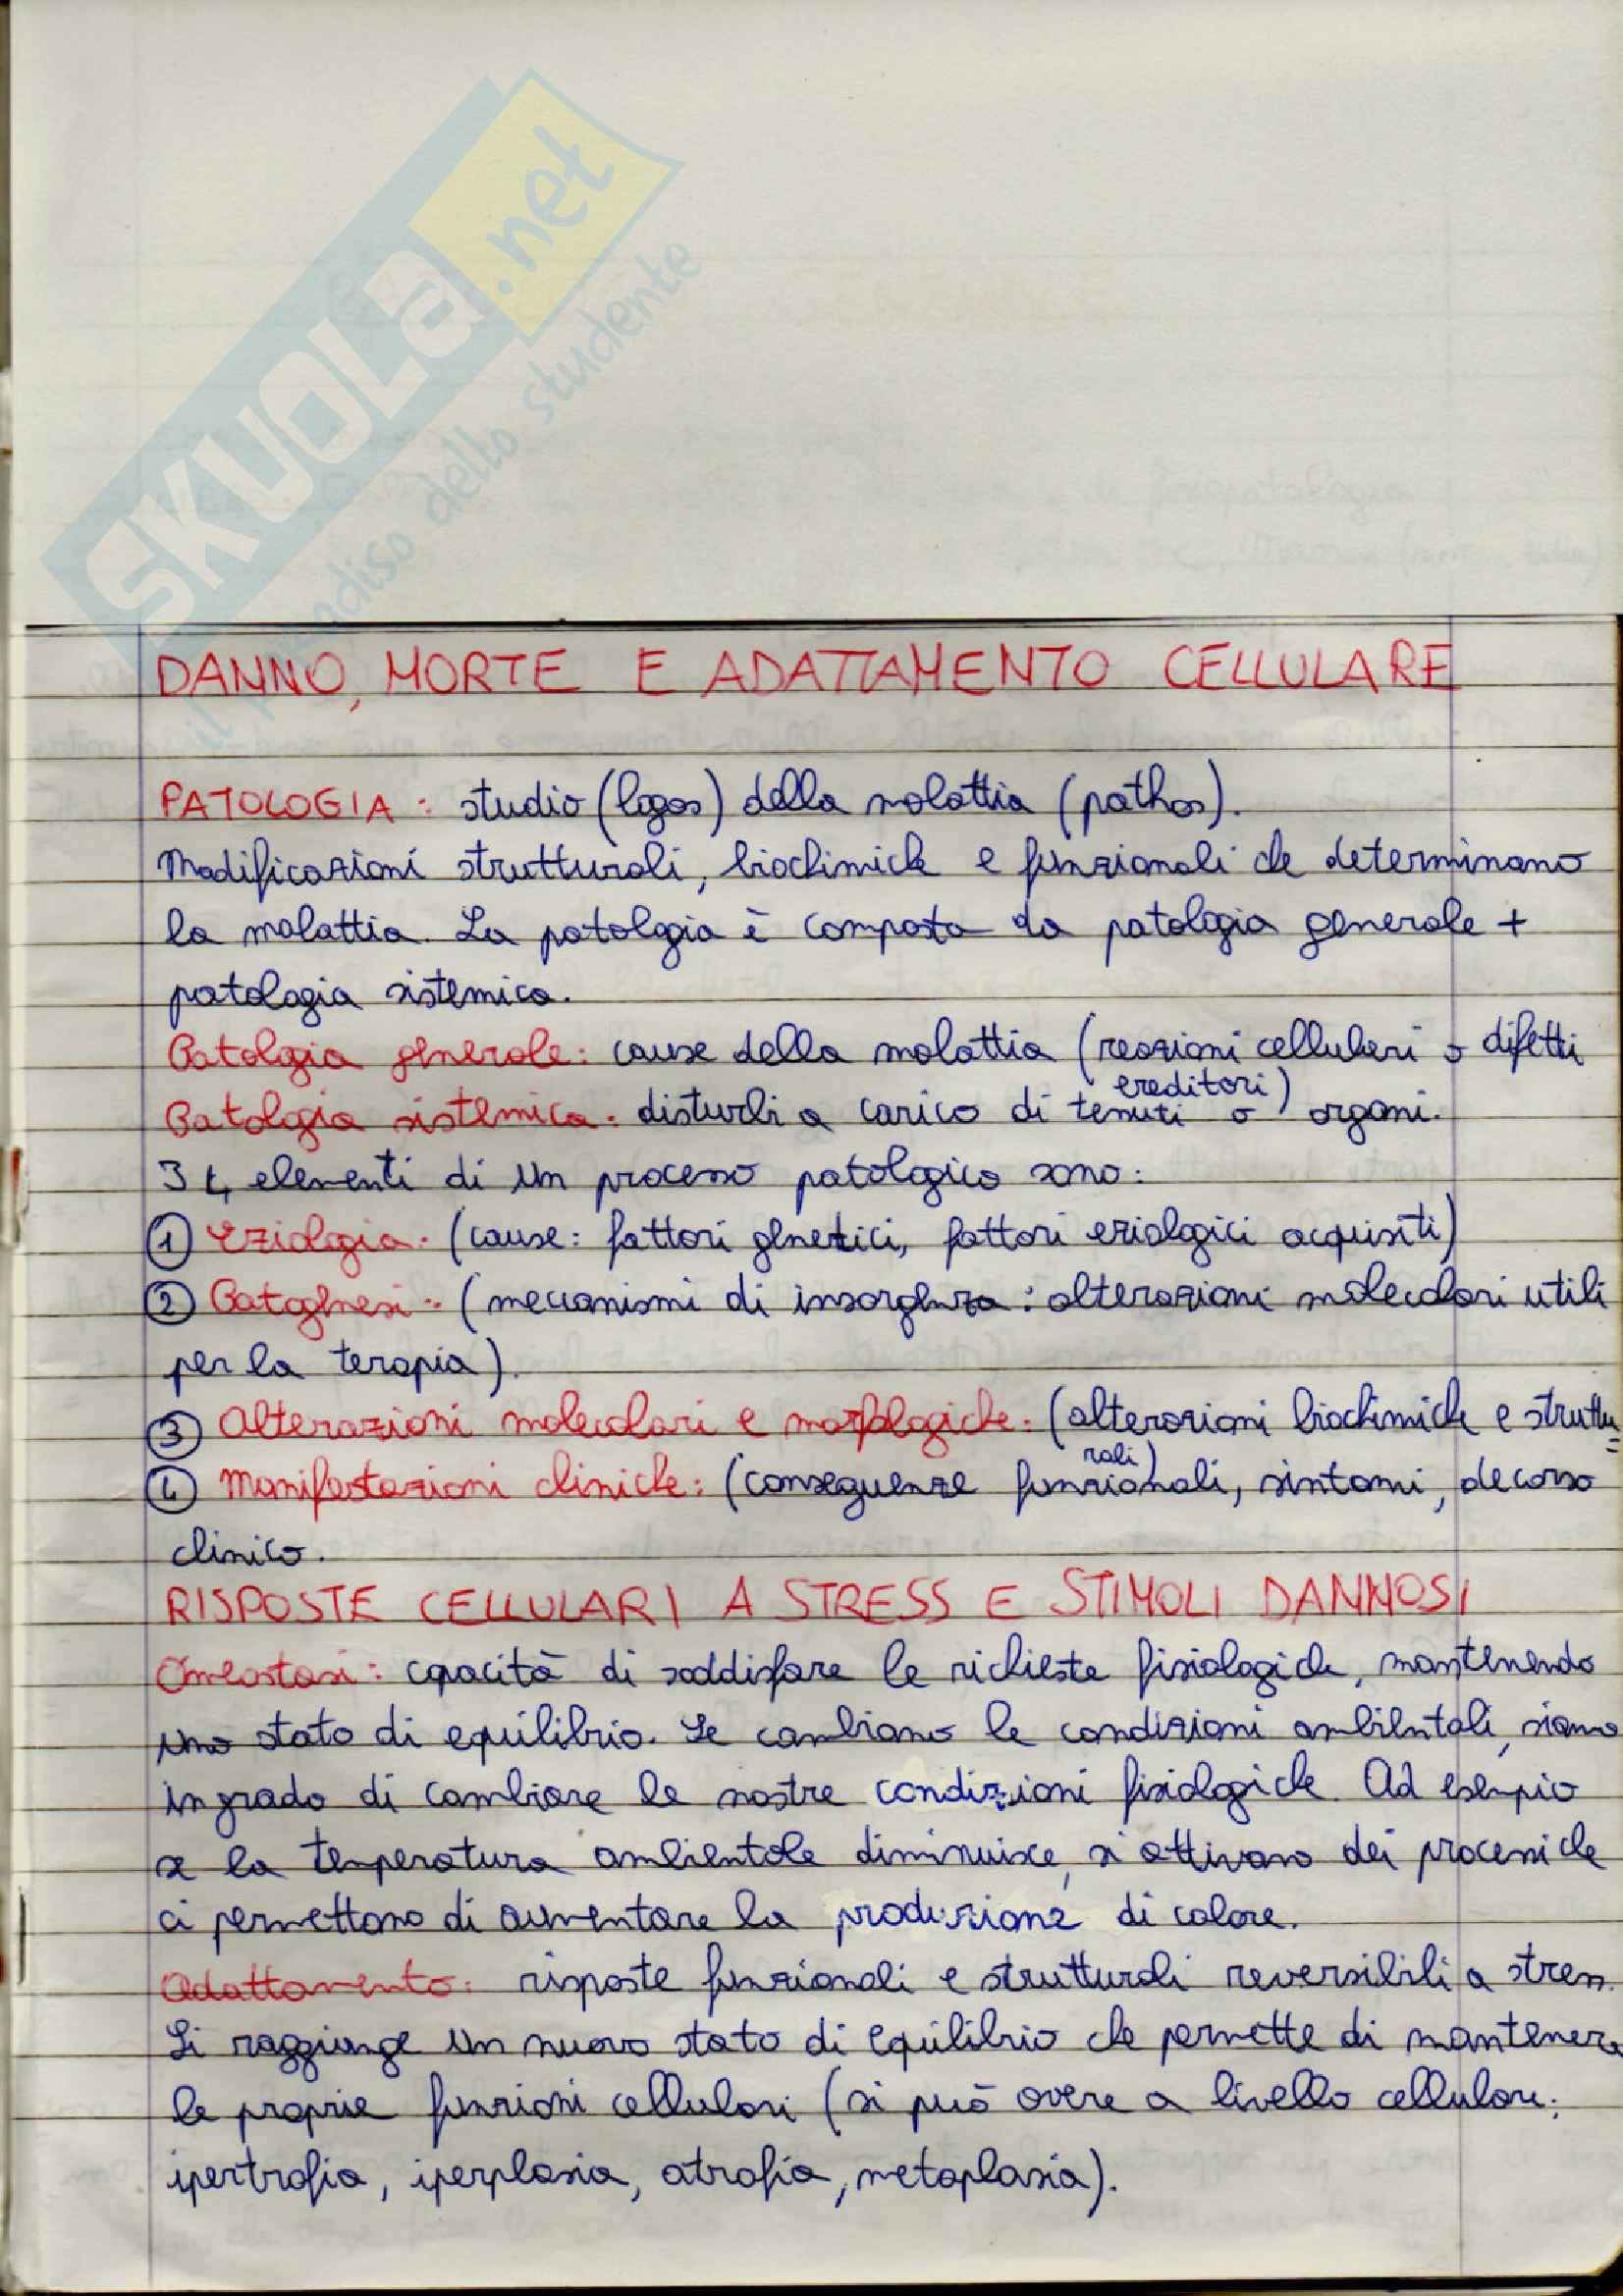 SKUOLA.net
il paradiso dello studente
DANNO, MORTE E ADATTAMENTO CELLULARE
PATOLOGIA: studio (logos) della malattia (pathos).
Modificazioni strutturali, biochimiche e funzionali che determinano
la malattia. La patologia è composta da patologia generale +
patologia sistemica.
Patologia generale: cause della malattia (reazioni cellulari o difetti
ereditari)
Patologia sistemica: disturbi a carico di tessuti o organi.
I 4 elementi di un processo patologico sono:
① Eziologia: (cause: fattori genetici, fattori eziologici acquisiti)
② Patogenesi: (meccanismi di insorgenza: alterazioni molecolari utili
per la terapia).
③ Alterazioni molecolari e morfologiche: (alterazioni biochimiche e struttu=
rali)
④ Manifestazioni cliniche: (conseguenze funzionali, sintomi, decorso
clinico.
RISPOSTE CELLULARI A STRESS E STIMOLI DANNOSI
Omeostasi: capacità di soddisfare le richieste fisiologiche, mantenendo
uno stato di equilibrio. Se cambiano le condizioni ambientali, siamo
in grado di cambiare le nostre condizioni fisiologiche. Ad esempio
se la temperatura ambientale diminuisce, si attivano dei processi che
ci permettono di aumentare la produzione di calore.
Adattamento: risposte funzionali e strutturali reversibili a stress.
Si raggiunge un nuovo stato di equilibrio che permette di mantenere
le proprie funzioni cellulari (si può avere a livello cellulare:
ipertrofia, iperplasia, atrofia, metaplasia).